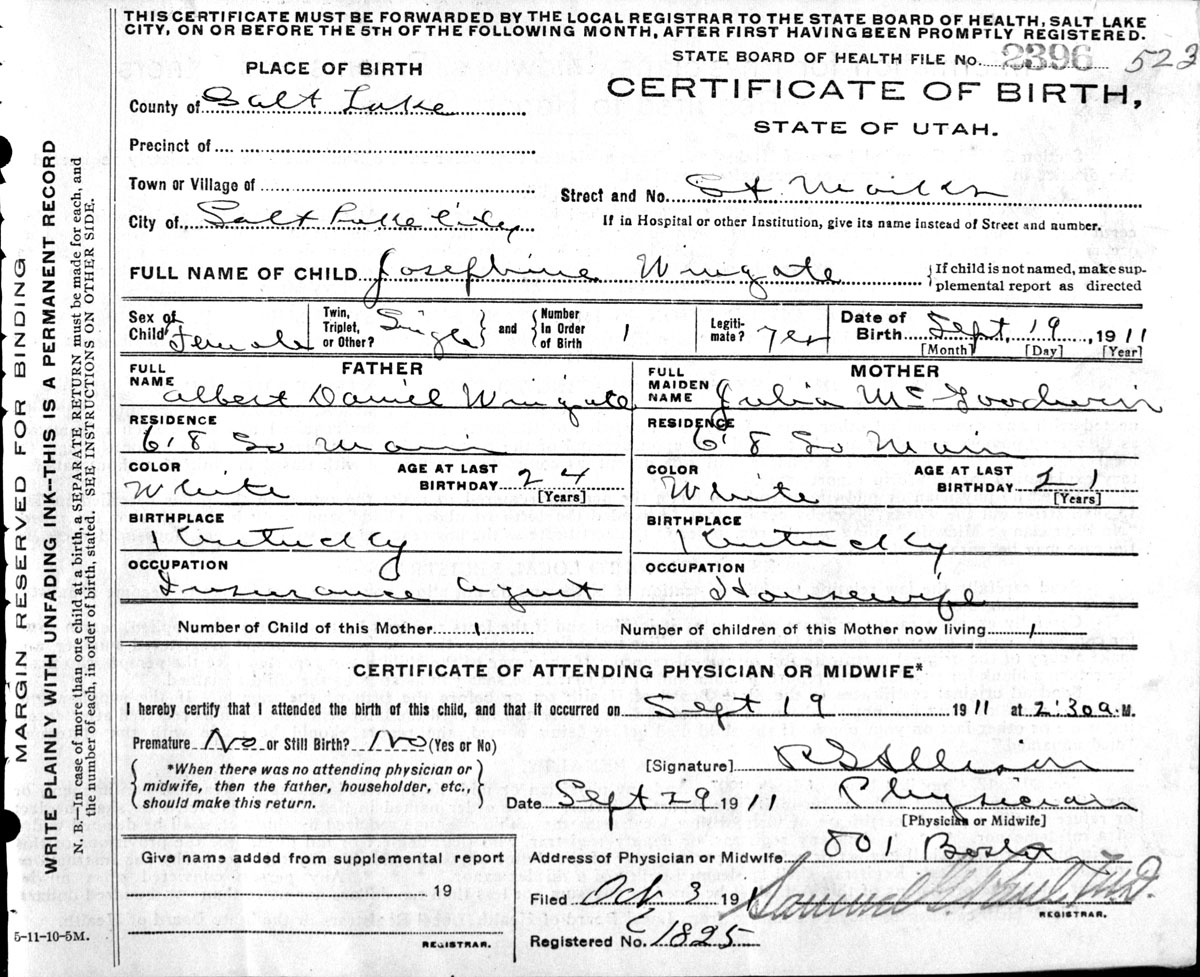 THIS CERTIFICATE MUST BE FORWARDED BY THE LOCAL REGISTRAR TO THE STATE BOARD OF HEALTH, SALT LAKE
CITY, ON OR BEFORE THE 5TH OF THE FOLLOWING MONTH, AFTER FIRST HAVING BEEN PROMPTLY REGISTERED.
STATE BOARD OF HEALTH FILE No. 2396 523
PLACE OF BIRTH
CERTIFICATE OF BIRTH,
STATE OF UTAH.
County of Salt Lake
Precinct of
Town or Village of
Street and No. St Marks
City of Salt Lake City
If in Hospital or other Institution, give its name instead of Street and number.
FULL NAME OF CHILD Josephine Wingate
If child is not named, make sup-
plemental report as directed
Sex of Child Female
Twin, Triplet, or Other? Single
and Number In Order of Birth 1
Legiti-mate? Yes
Date of Birth Sept 19, 1911
[Month] [Day] [Year]
FATHER
FULL NAME Albert Daniel Wingate
RESIDENCE 618 So Main
COLOR White
AGE AT LAST BIRTHDAY 24
[Years]
BIRTHPLACE Kentucky
OCCUPATION Insurance agent
MOTHER
FULL MAIDEN NAME Julia McGoodwin
RESIDENCE 618 So Main
COLOR White
AGE AT LAST BIRTHDAY 21
[Years]
BIRTHPLACE Kentucky
OCCUPATION Housewife
Number of Child of this Mother 1 Number of children of this Mother now living 1
CERTIFICATE OF ATTENDING PHYSICIAN OR MIDWIFE*
I hereby certify that I attended the birth of this child, and that it occurred on Sept 19 1911 at 2:30a.M.
Premature No or Still Birth? No (Yes or No)
*When there was no attending physician or
midwife, then the father, householder, etc.,
should make this return.
[Signature] Allison
Date Sept 29 1911 Physician
[Physician or Midwife]
Give name added from supplemental report
19
REGISTRAR.
Address of Physician or Midwife 801 Boston
Filed Oct 3 191 Samuel G. Paul M.D.
REGISTRAR.
Registered No. 1825
5-11-10-5M.
MARGIN RESERVED FOR BINDING
WRITE PLAINLY WITH UNFADING INK--THIS IS A PERMANENT RECORD
N. B.—In case of more than one child at a birth, a SEPARATE RETURN must be made for each, and
the number of each, in order of birth, stated. SEE INSTRUCTIONS ON OTHER SIDE.